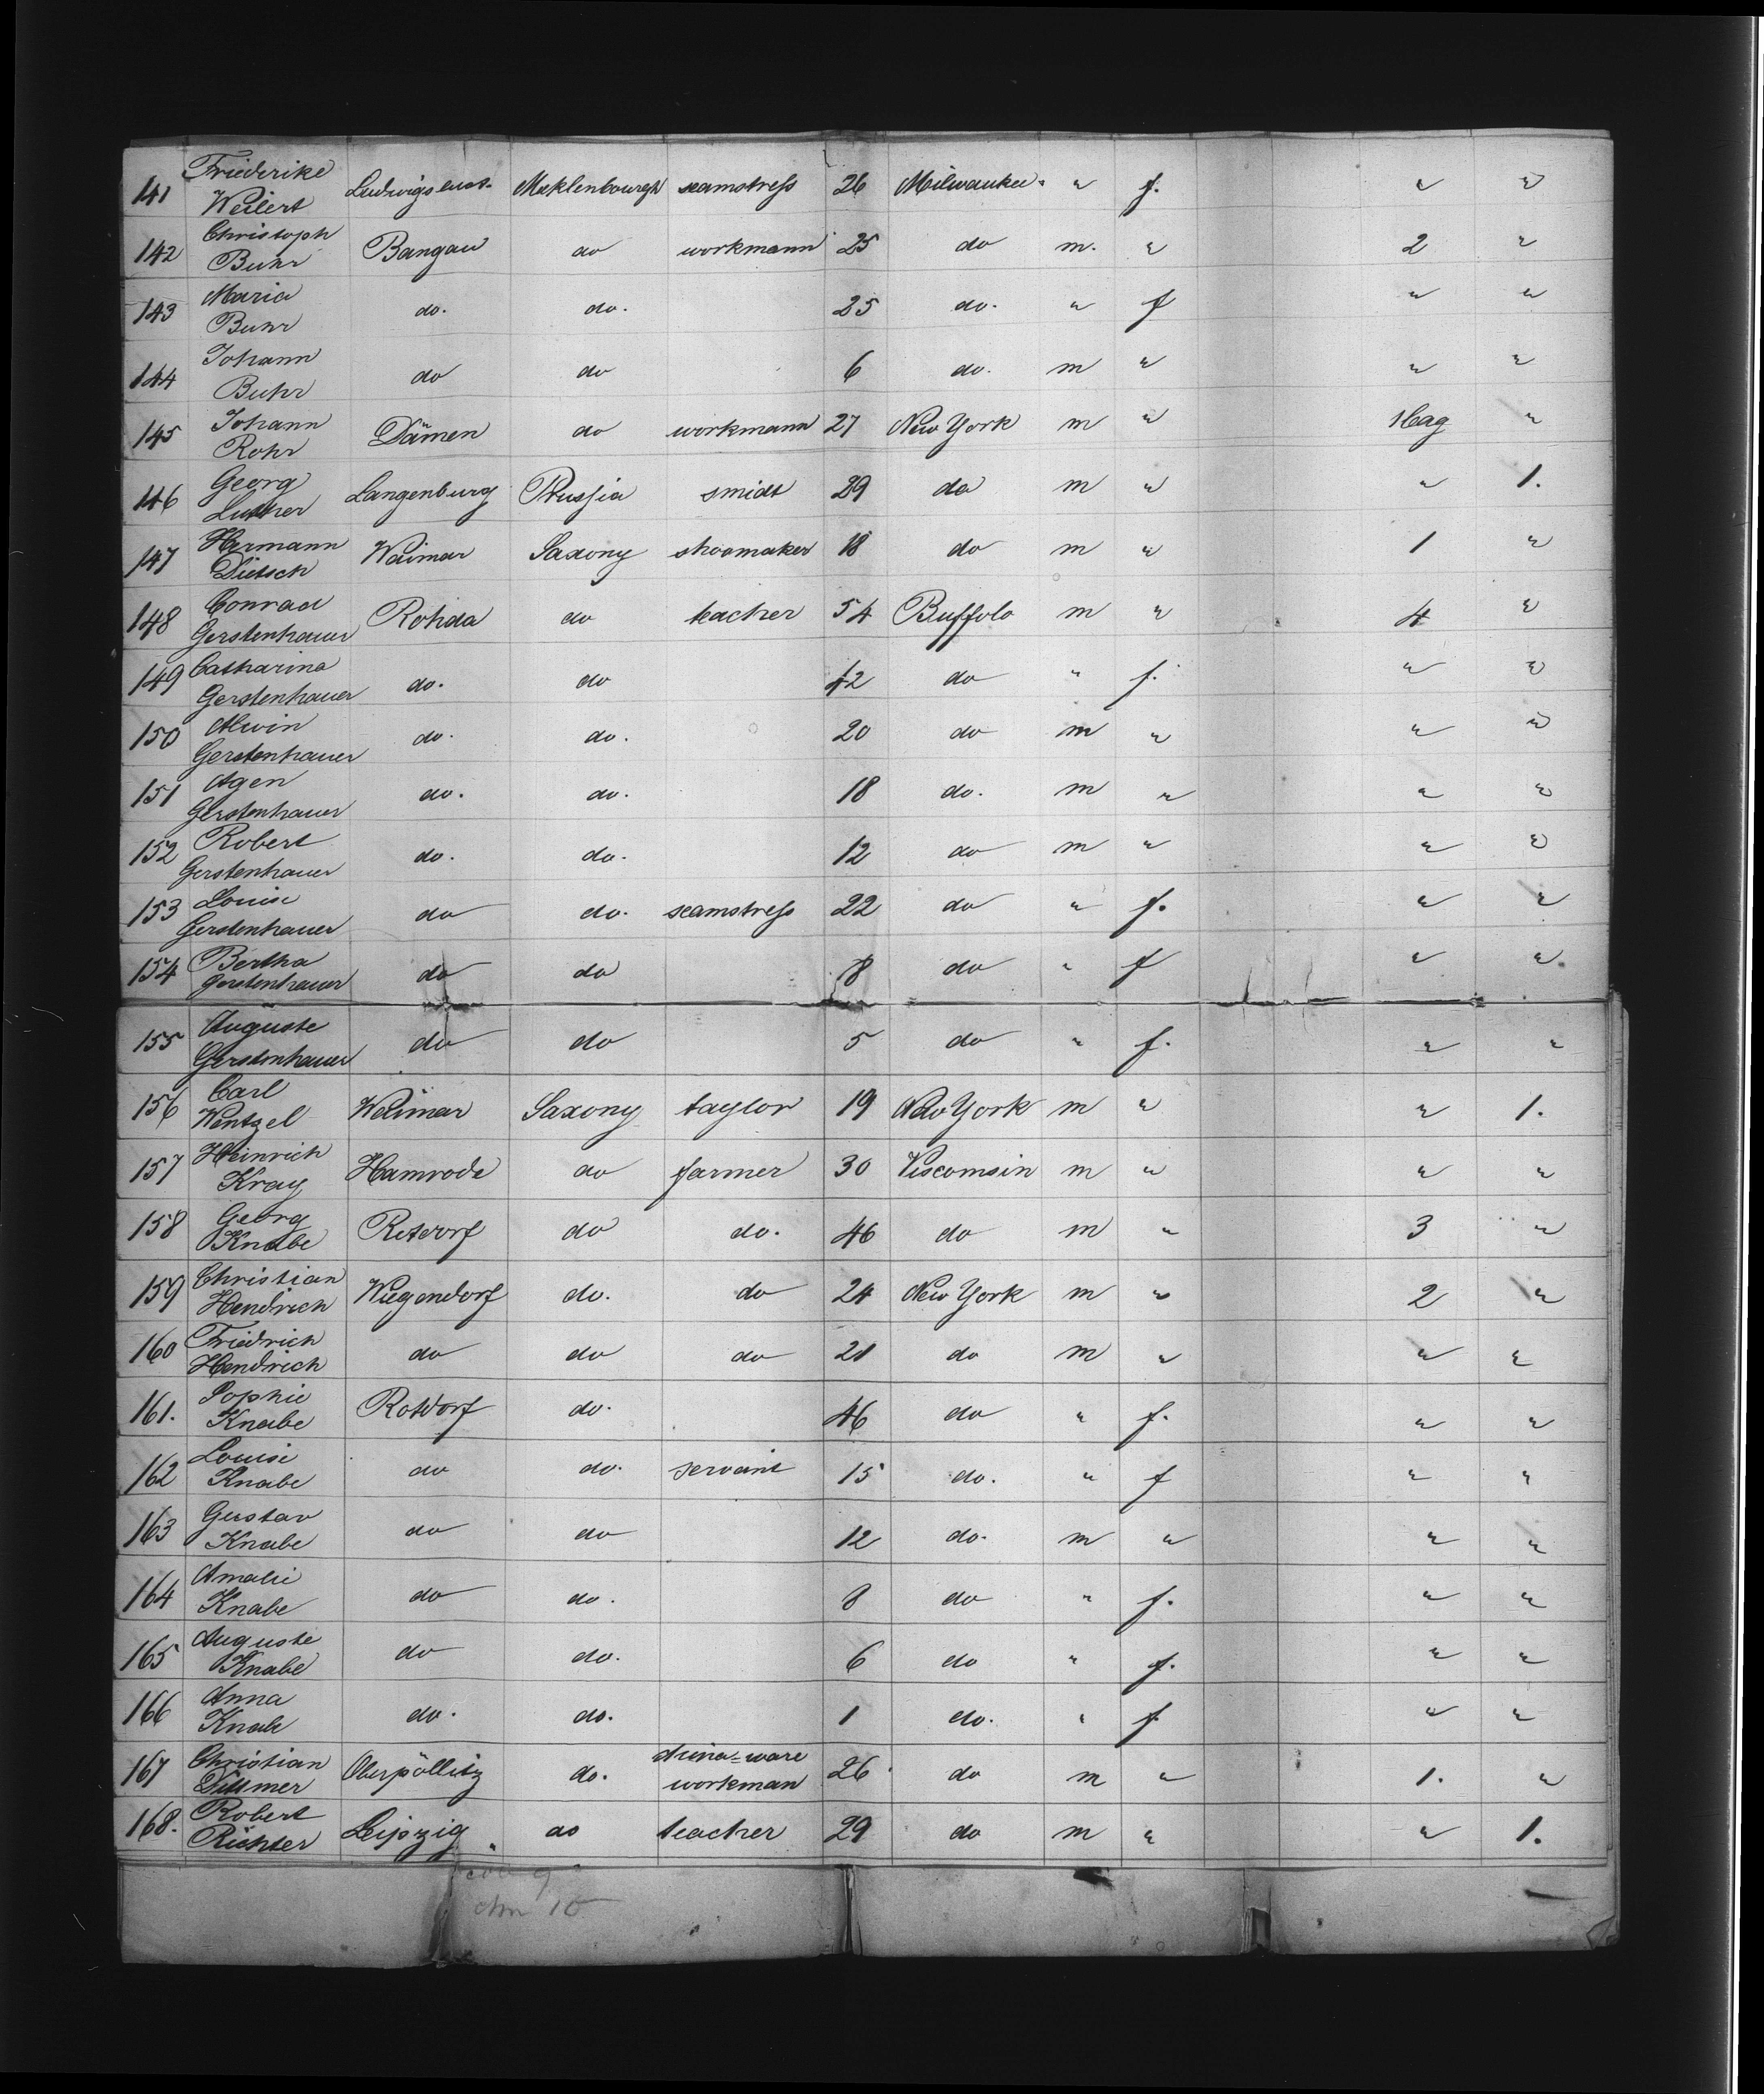 141 Friederike Weilert Ludwigslust. Mecklenbourgh seamstress 26 Milwaukee " f. " "
142 Christoph Buhr Bangau do workmann 25 do m. " 2 "
143 Maria Buhr do. do. 25 do. " f " "
144 Johann Buhr do do 6 do. m " " "
145 Johann Rohr Dämen do workmann 27 New York m " 1bag "
146 Georg Luther Langenburg Prussia smidt 29 do m " " 1.
147 Hermann Dietsch Weimar Saxony shoomaker 18 do m " 1 "
148 Conrad Gerstenhauer Rohda do teacher 54 Buffolo m " 4 "
149 Catharina Gerstenhauer do. do 42 do " f. " "
150 Alwin Gerstenhauer do. do. 20 do m " " "
151 Agen Gerstenhauer do. do. 18 do. m " " "
152 Robert Gerstenhauer do. do. 12 do m " " "
153 Louise Gerstenhauer do do. seamstress 22 do " f. " "
154 Bertha Gerstenhauer do do 8 do " f " "
155 Auguste Gerstenhauer do do 5 do " f. " "
156 Carl Wentzel Weimar Saxony taylor 19 New York m " " 1.
157 Heinrich Kray Hamrode do farmer 30 Viscomsin m " " "
158 Georg Knabe Rotdorf do do. 46 do m " 3 "
159 Christian Hendrich Wiegendorf do. do 24 New York m " 2 "
160 Friedrich Hendrich do do do 21 do m " " "
161. Sophie Knabe Rotdorf do. 46 do " f. " "
162 Louise Knabe do do. servant 15 do. " f " "
163 Gustav Knabe do do 12 do. m " " "
164 Amalie Knabe do do. 8 do " f. " "
165 Auguste Knabe do do. 6 do " f. " "
166 Anna Knabe do. do. 1 do. " f " "
167 Christian Dittmer Oberpöllitz do. china=ware workman 26 do m " 1. "
168. Robert Richter Leipzig do teacher 29 do m " " 1.